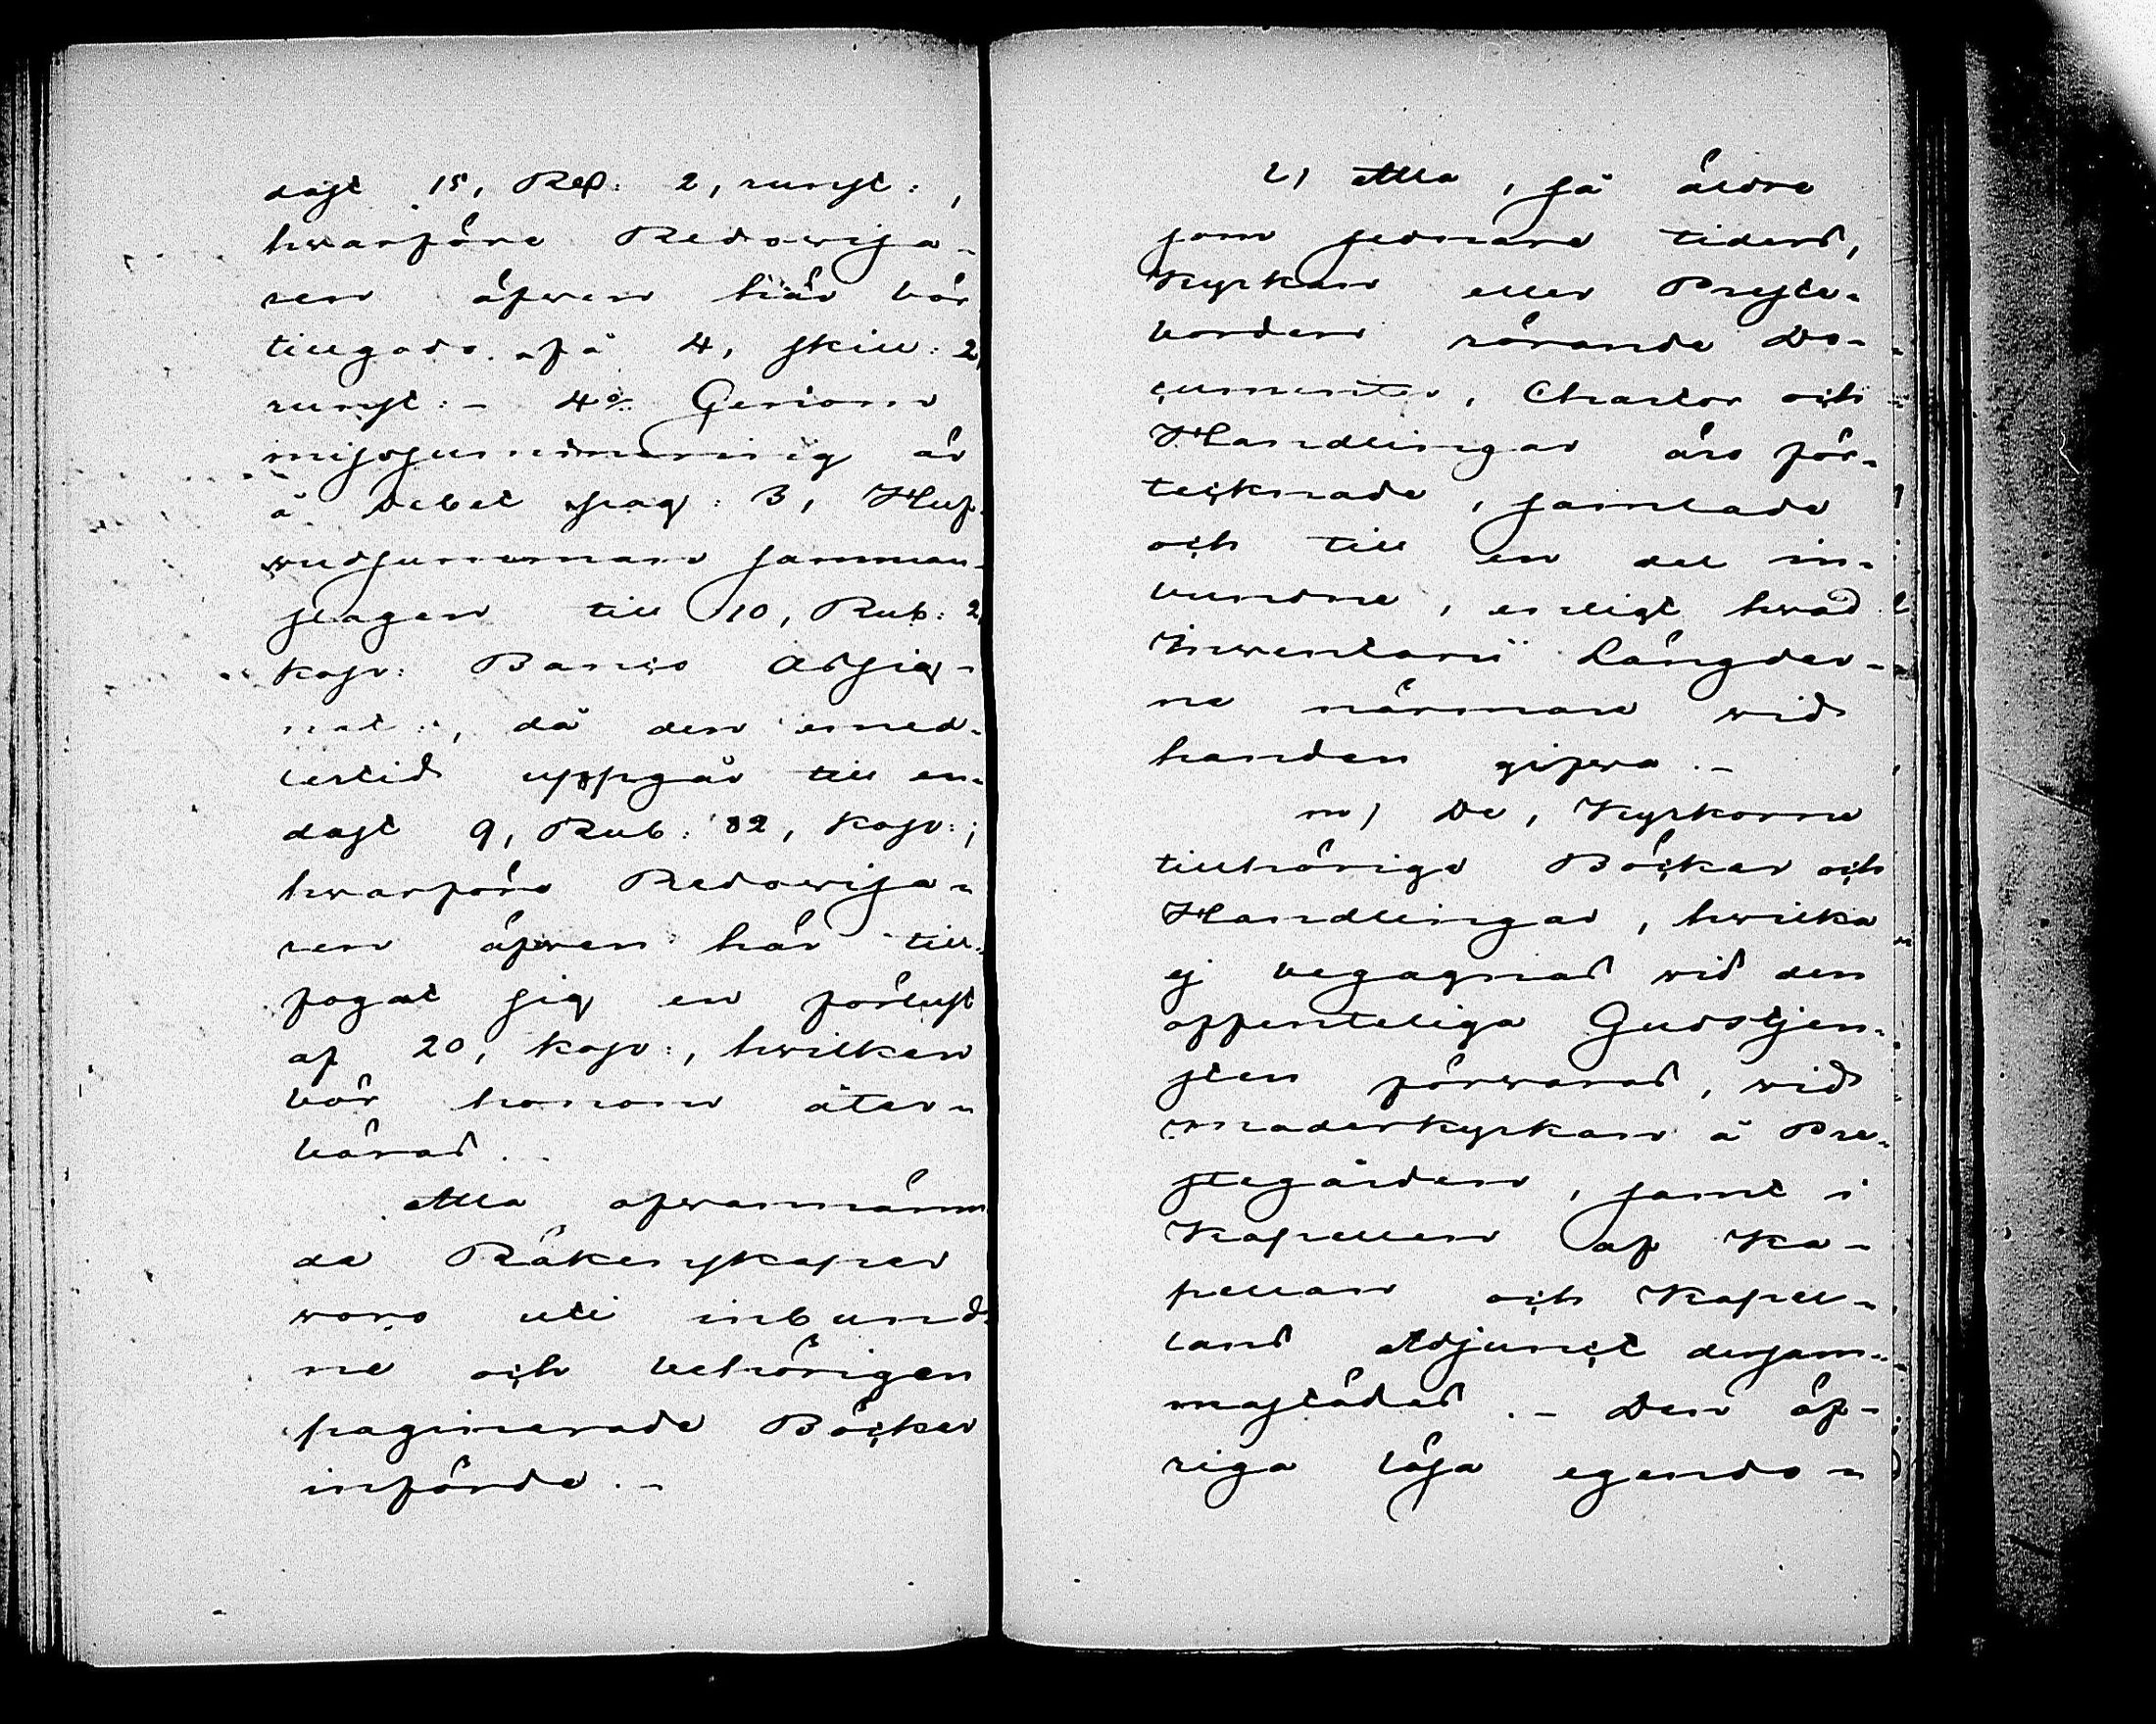 dast 15, Rd: 2, runst:,
hwarföre Redowisa-
ren äfwen här bör
tillgodo få 4, skill: 2,
runst: - 4o Genom
missummering är
å Debet pag: 3, Huf-
wudsumman samman-
slagen till 10, Rub: 2,
kop: Banco Assig-
nat:, då den emed-
lertid uppgår till en-
dast 9, Rub: 82, kop:;
hwarföre Redowisa-
ren äfwen här till-
fogat sig en förlust
af 20, kop:, hwilken
bör honom åter-
bäras. -
Alla ofwannämn
da Räkenskaper
woro uti inbund-
ne och behörigen
paginerade Böcker
införde. -
l) Alla, så äldre
som sednare tiders,
Kyrkan eller Preste-
borden rörande Do-
cumenter, Chartor och
Handlingar äro för-
tecknade, samlade
och till en del in-
bundne, enligt hwad
Inwentarii Längder-
ne närmare wid
handen gifwa. -
m) De, Kyrkorne
tillhörige Böcker och
Handlingar, hwilka
ej begagnas wid den
offenteliga Gudstjen-
sten förwaras, wid
moderkyrkan å Pre-
stegården, samt i
Kapellen af Ka-
pellan och Kapel-
lans Adjunct dersam-
mastädes. - Den öf-
riga lösa egendo-